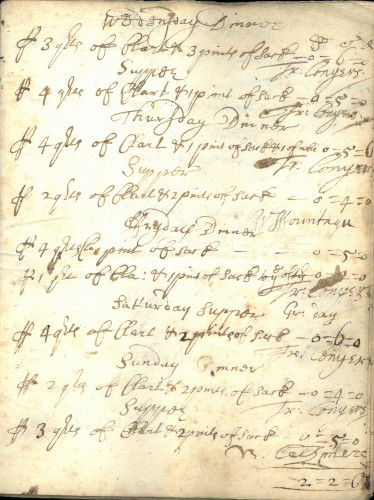 Wedensday Dinner
ff 3 qts of Clart & 3 pints of sack
Supper Jr: Conyers
ff 4 qts of Clart & 1 pint of sack - 0 = 5 = 0
Thursday Dinner Jr: Conyers
ff 4 qts of Clart & 1 pint of sack & 1 of 0 = 5 = 6
Supper Jr: Conyers
ff 2 qts of Clart & 2 pints of sack - 0 = 4 = 0
Fryday Dinner Mountain
ff 4 qts pint of sack - - 0 = 5 = 0
ff 1 qt of Cla: & 1 pint of sack
Saturday Supper Gr: day
ff 4 qts of Clart & 2 pints of sack - 0 = 6 = 0
Sunday Dinner Jr: Conyers
ff 2 qts of Clart & 2 pints of sack - 0 = 4 = 0
Supper Jr: Conyers
ff 3 qts of Clart & 2 pints of sack 0 = 5 = 0
2 = 2 = 6